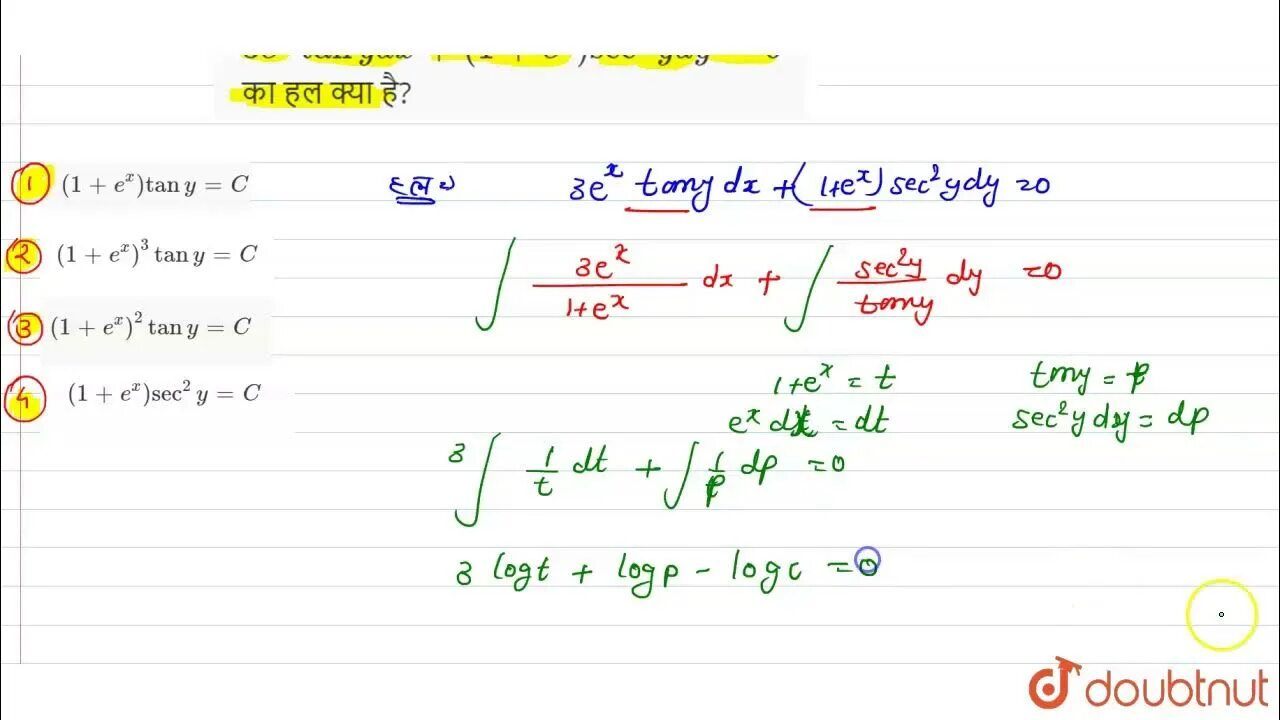 का हल क्या है?
1 (1 + e^x)tan y = C
2 (1 + e^x)^3 tan y = C
3 (1 + e^x)^2 tan y = C
4 (1 + e^x)sec^2 y = C
हल⇒ 3e^x tany dx + (1+e^x) sec^2y dy = 0
∫ 3e^x/1+e^x dx + ∫ sec^2y/tany dy = 0
1+e^x = t tany = p
e^x dx = dt sec^2y dy = dp
3 ∫ 1/t dt + ∫ 1/p dp = 0
3 logt + logp - logc = 0
doubtnut